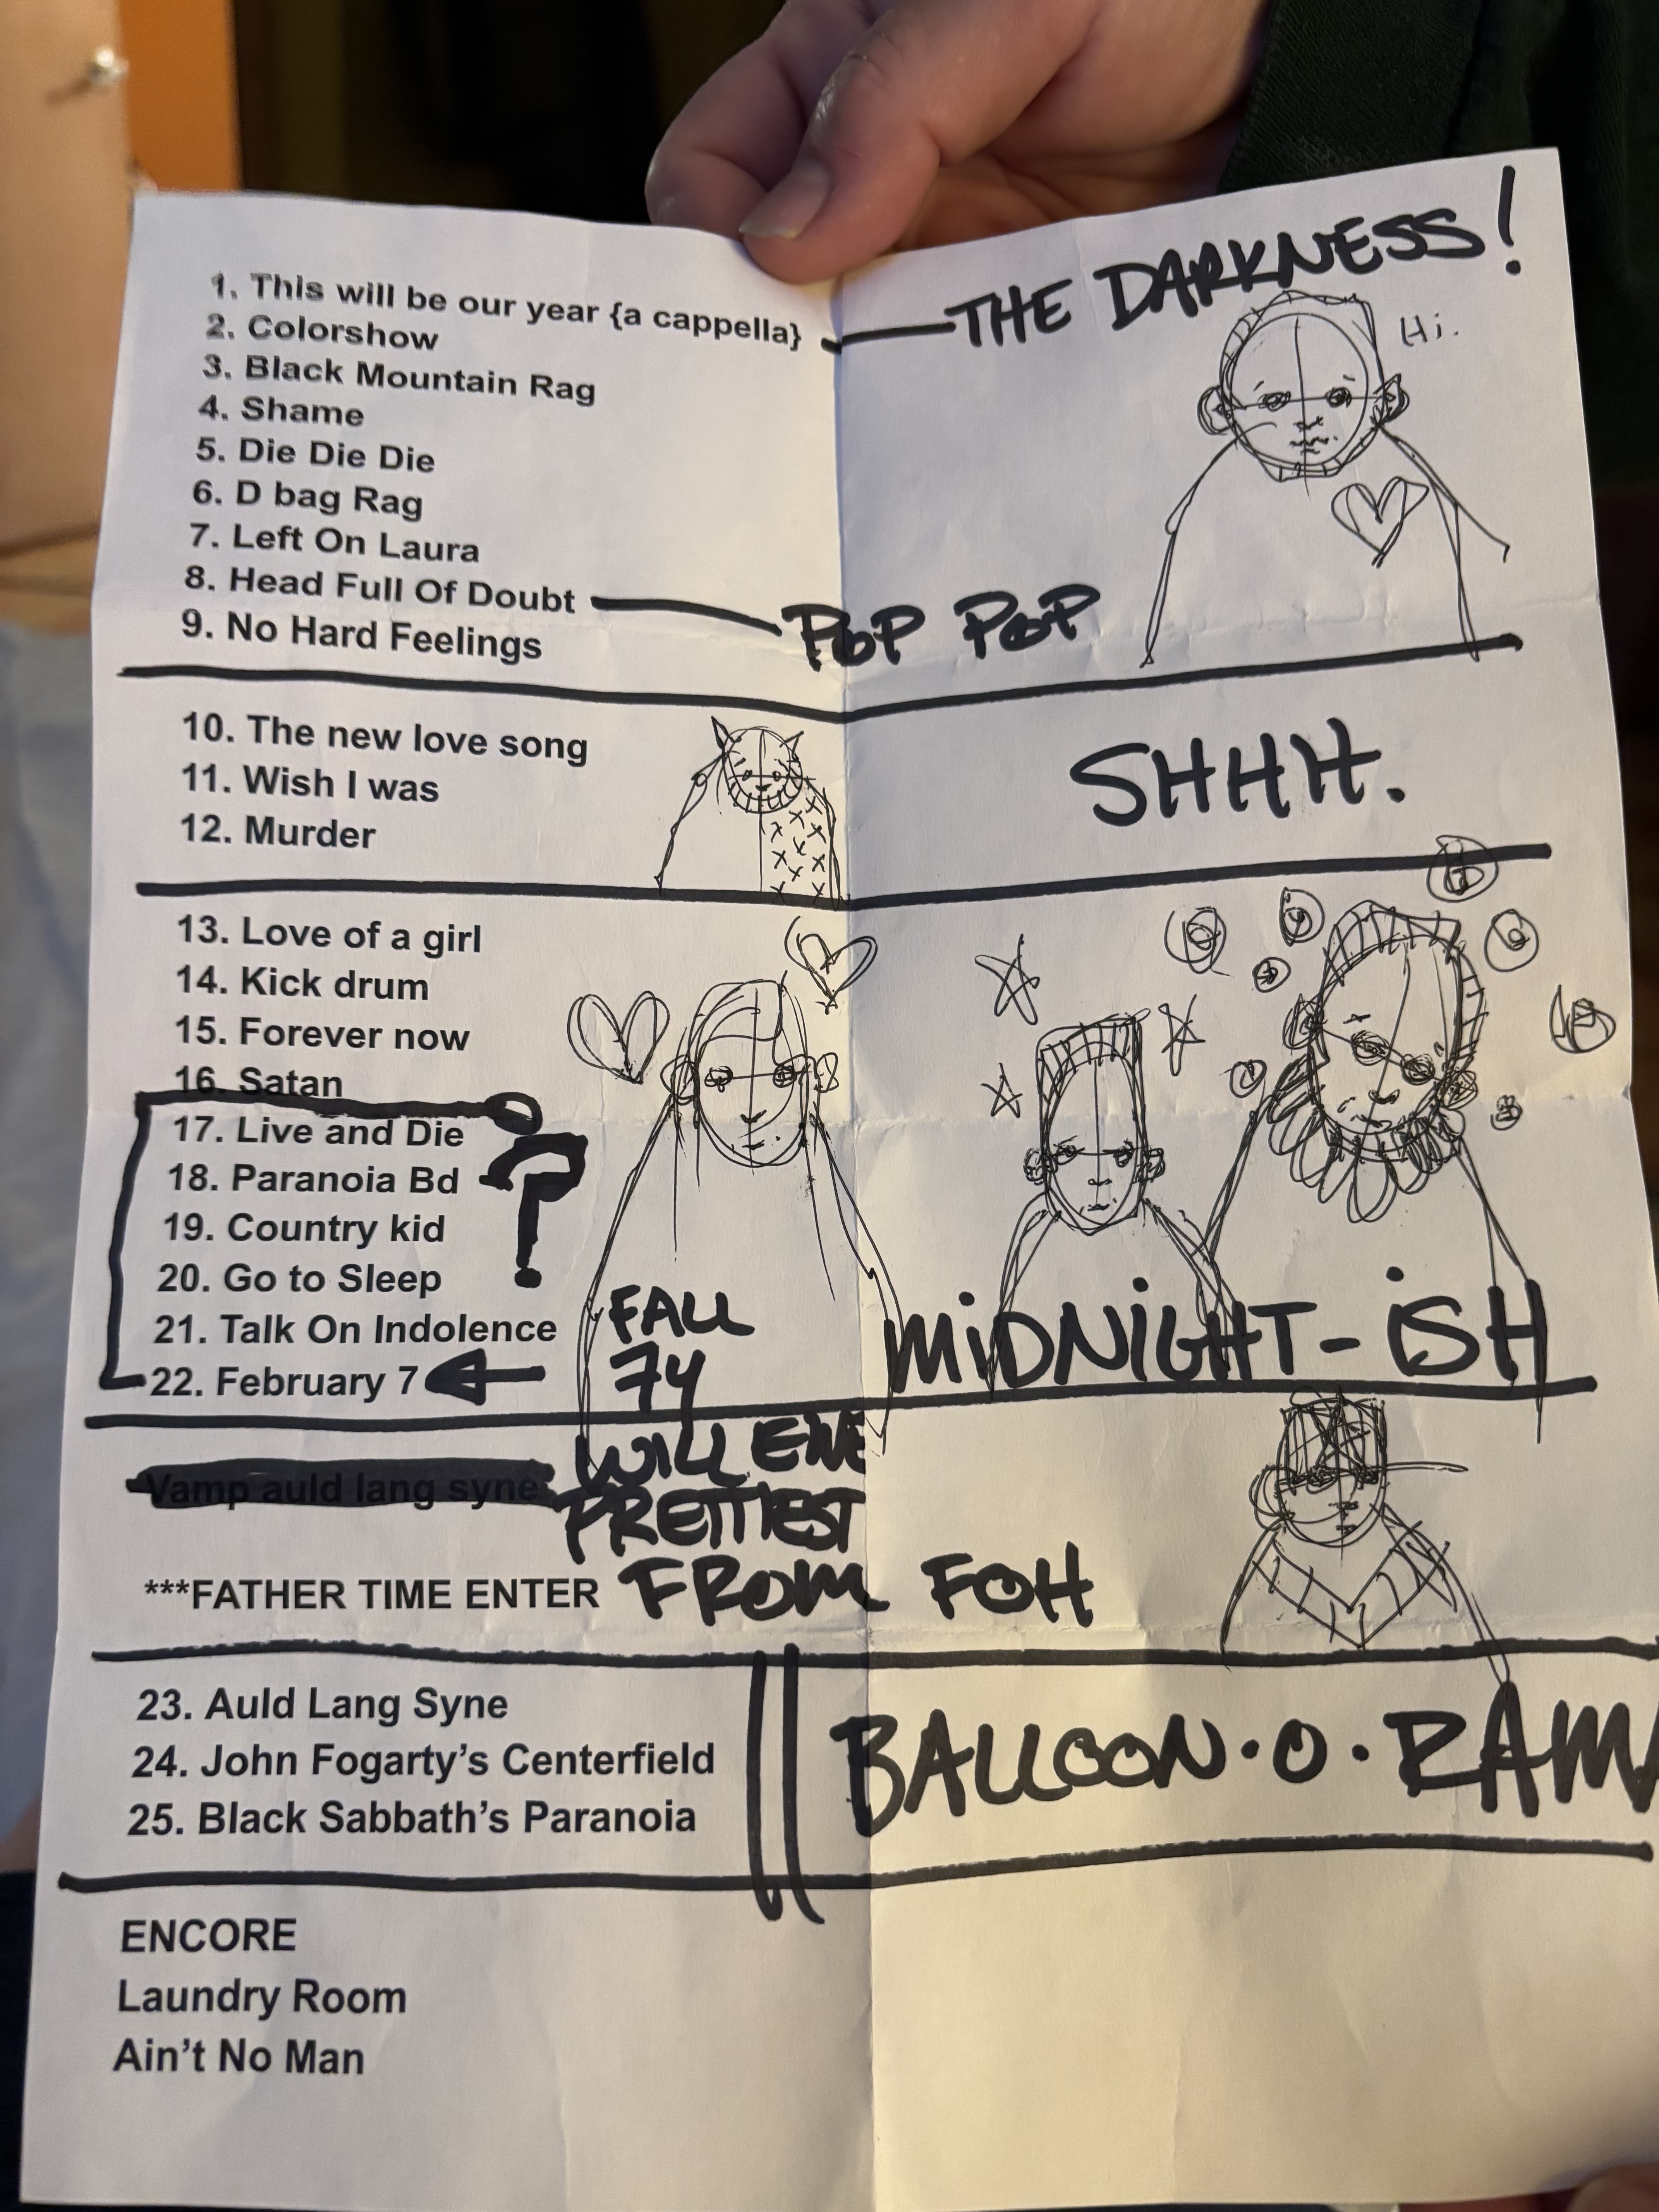 1. This will be our year {a cappella} THE DARKNESS!
Hi.
2. Colorshow
3. Black Mountain Rag
4. Shame
5. Die Die Die
6. D bag Rag
7. Left On Laura
8. Head Full Of Doubt POP POP
9. No Hard Feelings
10. The new love song
11. Wish I was
12. Murder
SHHH.
13. Love of a girl
14. Kick drum
15. Forever now
16. Satan
17. Live and Die
18. Paranoia Bd
19. Country kid
20. Go to Sleep
21. Talk On Indolence
22. February 7
?
FALL
74
MIDNIGHT-ISH
WILL
PRETTIEST
Vamp auld lang syne
***FATHER TIME ENTER FROM FOH
23. Auld Lang Syne
24. John Fogarty's Centerfield
25. Black Sabbath's Paranoia
BALLOON·O·RAMA
ENCORE
Laundry Room
Ain't No Man